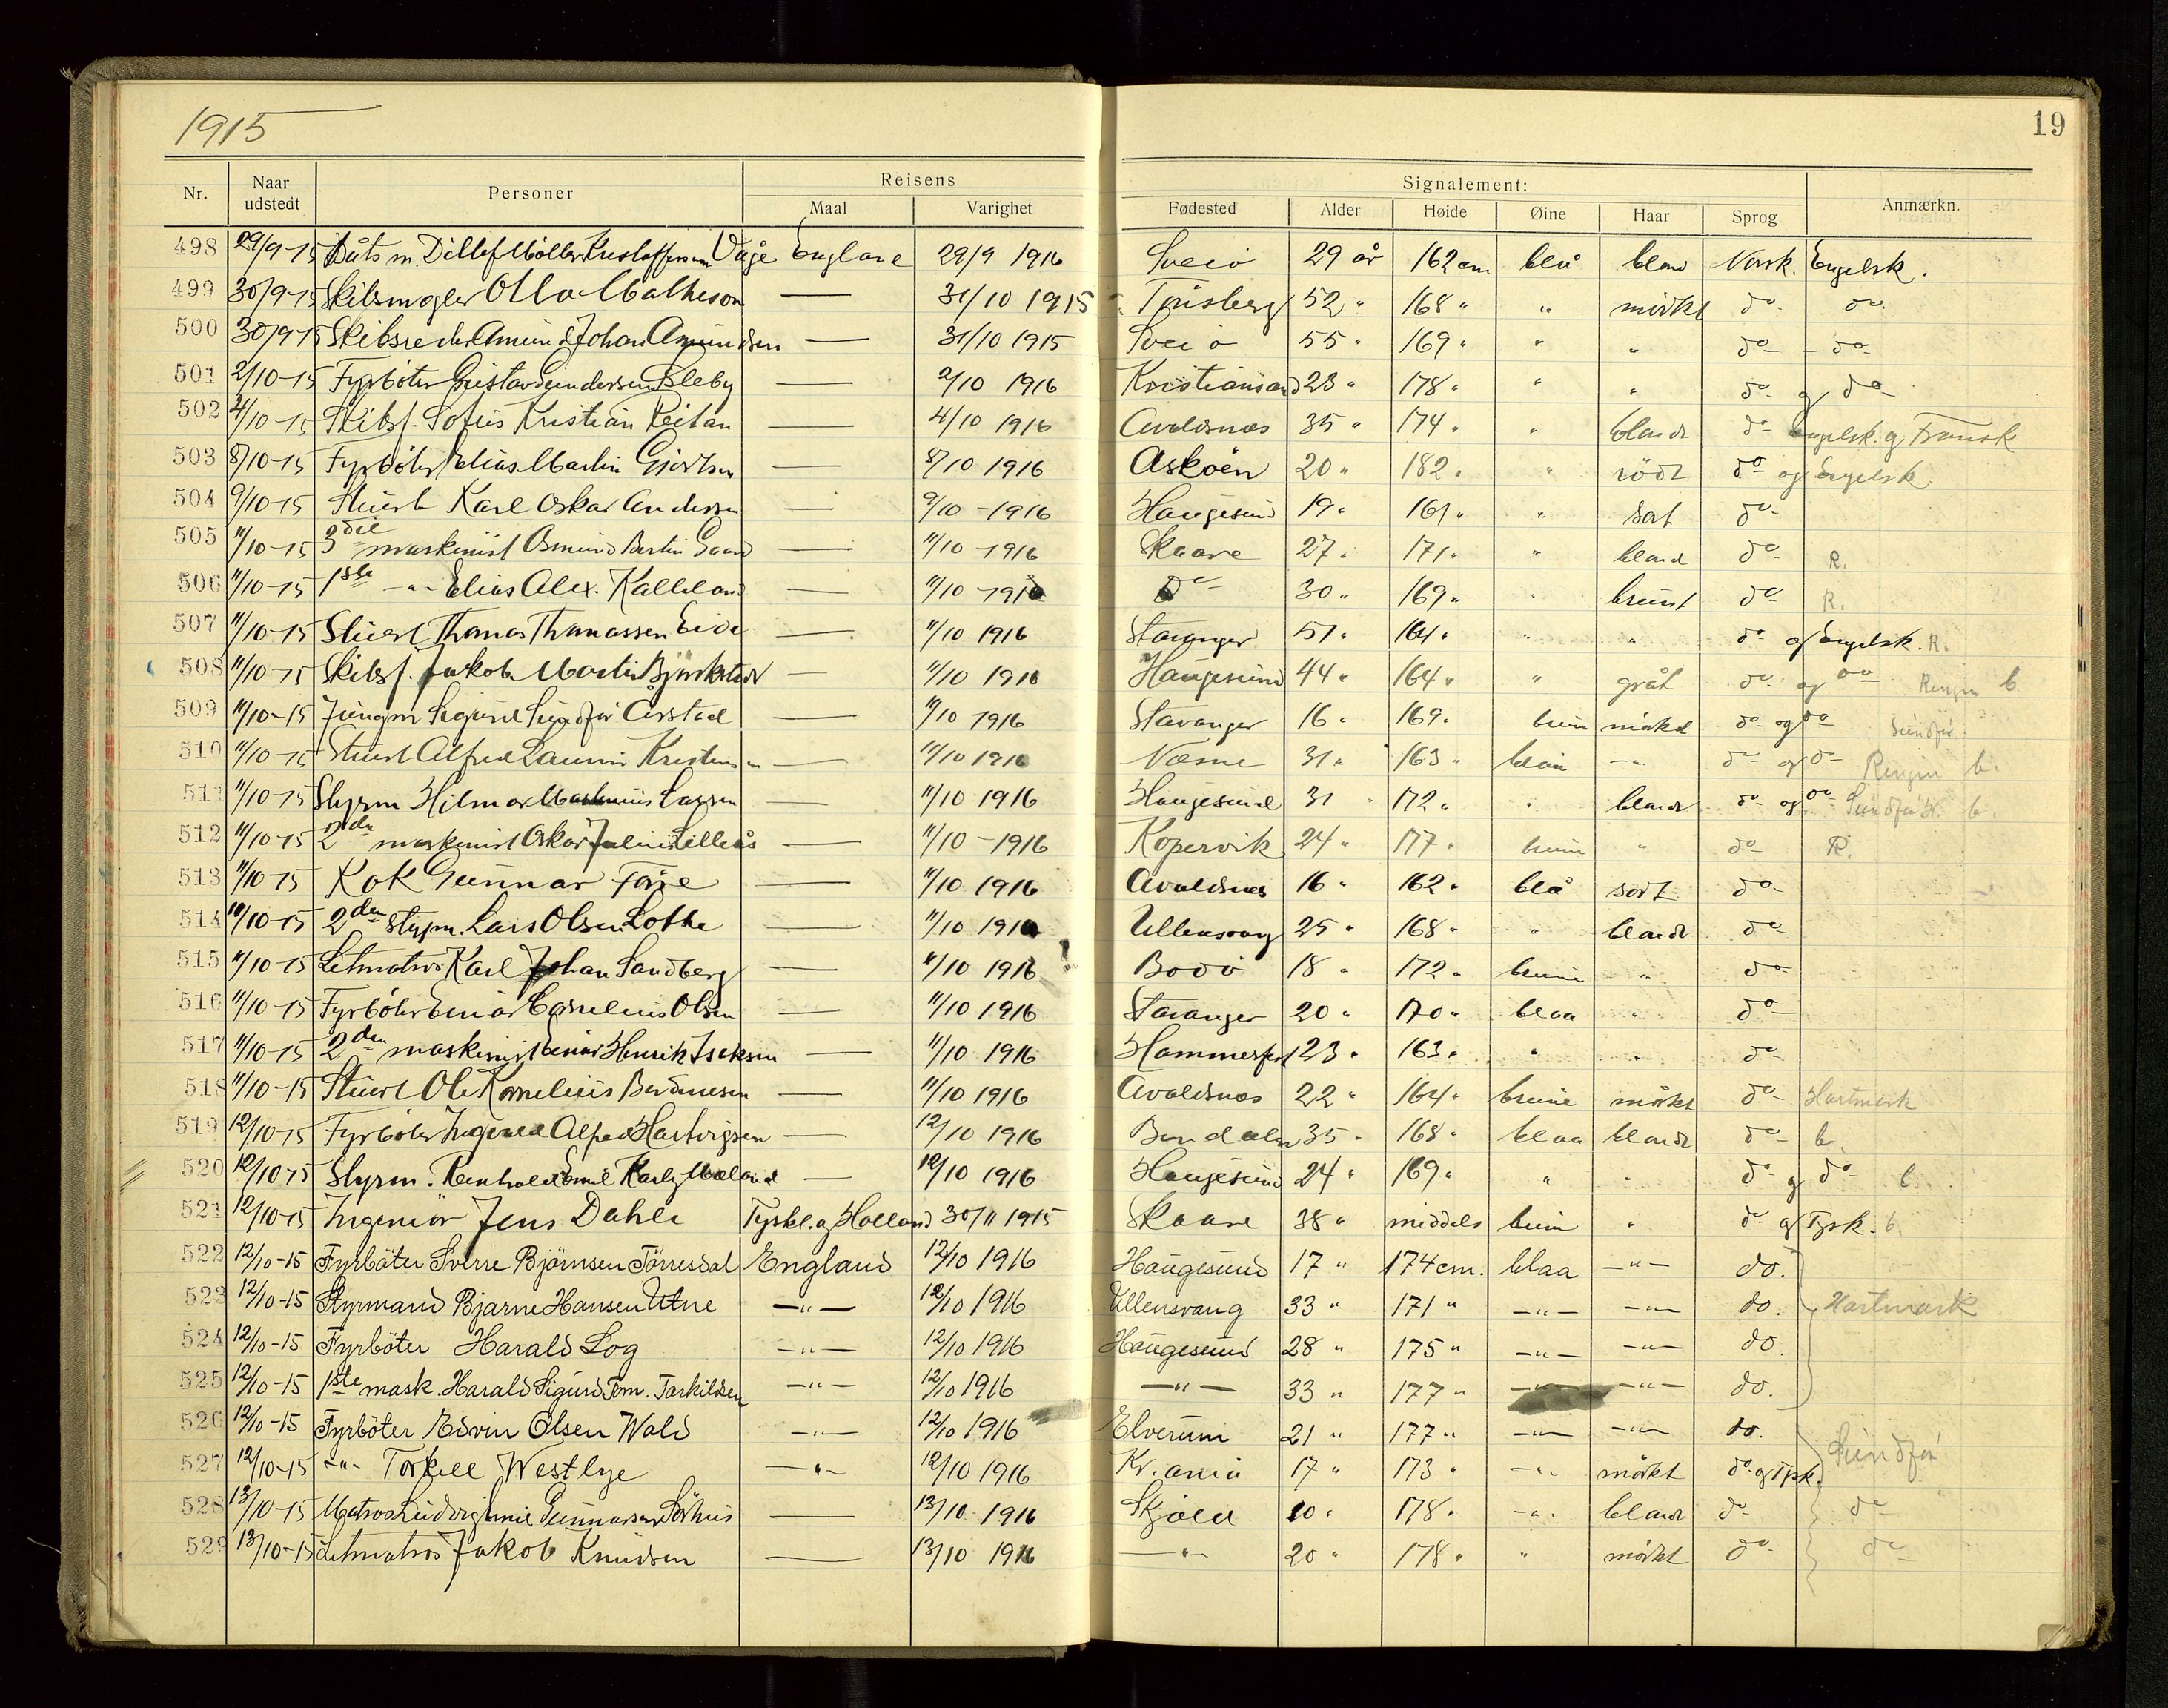 1915
19
Nr. Naar udstedt Personer Reisens Maal Varighet Signalement: Fødested Alder Høide Øine Haar Sprog Anmærkn.
498 29/9-15 Båtsm. Ditlef Möller Kristoffersen Våge England 29/9 1916 Sveio 29 år 162 cm blå blond Norsk. Engelsk.
499 30/9-15 Skibsmegler Otto Matheson — 31/10 1915 Tönsberg 52 " 168 " " mörkt do- do-
500 30/9-15 Skibsreder Amund Johan Amundsen — 31/10 1915 Sveio 55 " 169 " " " do- - do-
501 2/10-15 Fyrböter Gustav Gundersen Sleby — 2/10 1916 Kristiansand 23 " 178 " " " do- g do-
502 4/10-15 Skibsf. Sofus Kristian Reitan — 4/10 1916 Avaldsnes 35 " 174 " " blondt do- engelsk. g Fransk
503 8/10-15 Fyrböter Elias Martin Gjertsen — 8/10 1916 Asköen 20 " 182 " " rödt do og Engelsk
504 9/10-15 Stuert Karl Oskar Andersen — 9/10 -1916 Haugesund 19 " 161 " " sort do-
505 11/10-15 3die maskinist Osmund Bertin Gaard — 11/10 -1916 Skaare 27 " 171 " " blond do- R.
506 11/10-15 1ste -"- Elias Alex. Kalleland — 11/10 -1916 Do- 30 " 169 " " brunt do- R.
507 11/10-15 Stuert Thomas Thomassen Eide — 11/10 1916 Stavanger 51 " 164 " " " do- og Engelsk. R.
508 11/10-15 Skibsf. Jakob Martin — 11/10 1916 Haugesund 44 " 164 " " gråt do- og do- b.
509 11/10-15 Jungm Sigurd Sundför Årstad — 11/10 1916 Stavanger 16 " 169 " brun mörkt do- og do- Sundför
510 11/10-15 Stuert Alfred Kristensen — 11/10 1916 31 " 163 " blåa -"- do- og do- b.
511 11/10-15 Styrm Hilmar Larsen — 11/10 1916 Haugesund 31 " 172 " " blondt do- og do- Sundför b.
512 11/10-15 2den maskinist Oskar Lilleås — 11/10 -1916 Kopervik 24 " 177 " brun " do- R.
513 11/10-15 Kok Gunnar — 11/10 1916 Avaldsnes 16 " 162 " blå sort do-
514 11/10-15 2den styrm. Lars Olsen Lothe — 11/10 1916 Ullensvang 25 " 168 " " blondt do-
515 11/10-15 Letmatros Karl Johan Sandberg — 11/10 1916 Bodö 18 " 172 " brune " do-
516 11/10-15 Fyrböter Einar Cornelius Olsen — 11/10 1916 Stavanger 20 " 170 " blaa " do-
517 11/10-15 2den maskinist Einar Henrik Isaksen — 11/10 1916 Hammerfest 23 " 163 " " " do-
518 11/10-15 Stuert Ole Kornelius — 11/10 1916 Avaldsnes 22 " 164 " brune mörkt do- Hartmark
519 12/10-15 Fyrböter Ingvald Alfred Hartvigsen — 12/10 1916 35 " 168 " blaa blondt do- b.
520 12/10 15 Styrm. Reinhold Emil — 12/10 1916 Haugesund 24 " 169 " " " do- g do- b.
521 12/10-15 Ingeniör Jens Dahle Tyskl. g Holland 30/11 1915 Skaare 38 " middels brun " do- g Tysk. b.
522 12/10-15 Fyrböter Sverre Björnsen Törresdal England 12/10 1916 Haugesund 17 " 174 cm. blaa -"- do.
523 12/10-15 Styrmand Bjarne Hansen Utne -"- 12/10 1916 Ullensvang 33 " 171 " -"- -"- do. Hartmark
524 12/10-15 Fyrböter Harald Log -"- 12/10 1916 Haugesund 28 " 175 " -"- -"- do.
525 12/10-15 1ste mask. Harald Sigurd Tom. Torkildsen -"- 12/10 1916 -"- 33 " 177 " -"- -"- do.
526 12/10-15 Fyrböter Edvin Olsen Wald -"- 12/10 1916 Elverum 21 " 177 " -"- -"- do.
527 12/10-15 -"- Torkell Westlye -"- 12/10 1916 Kr.ania 17 " 173 " -"- mörkt do- g Tysk. Sundför
528 13/10-15 Matros Ludvig Emil Gunnarsen Sörhus — 13/10 1916 Skjold 20 " 178 " -"- blondt do- do-
529 13/10-15 Letmatros Jakob Knudsen — 13/10 1916 -"- 20 " 178 " " mörkt do- do-